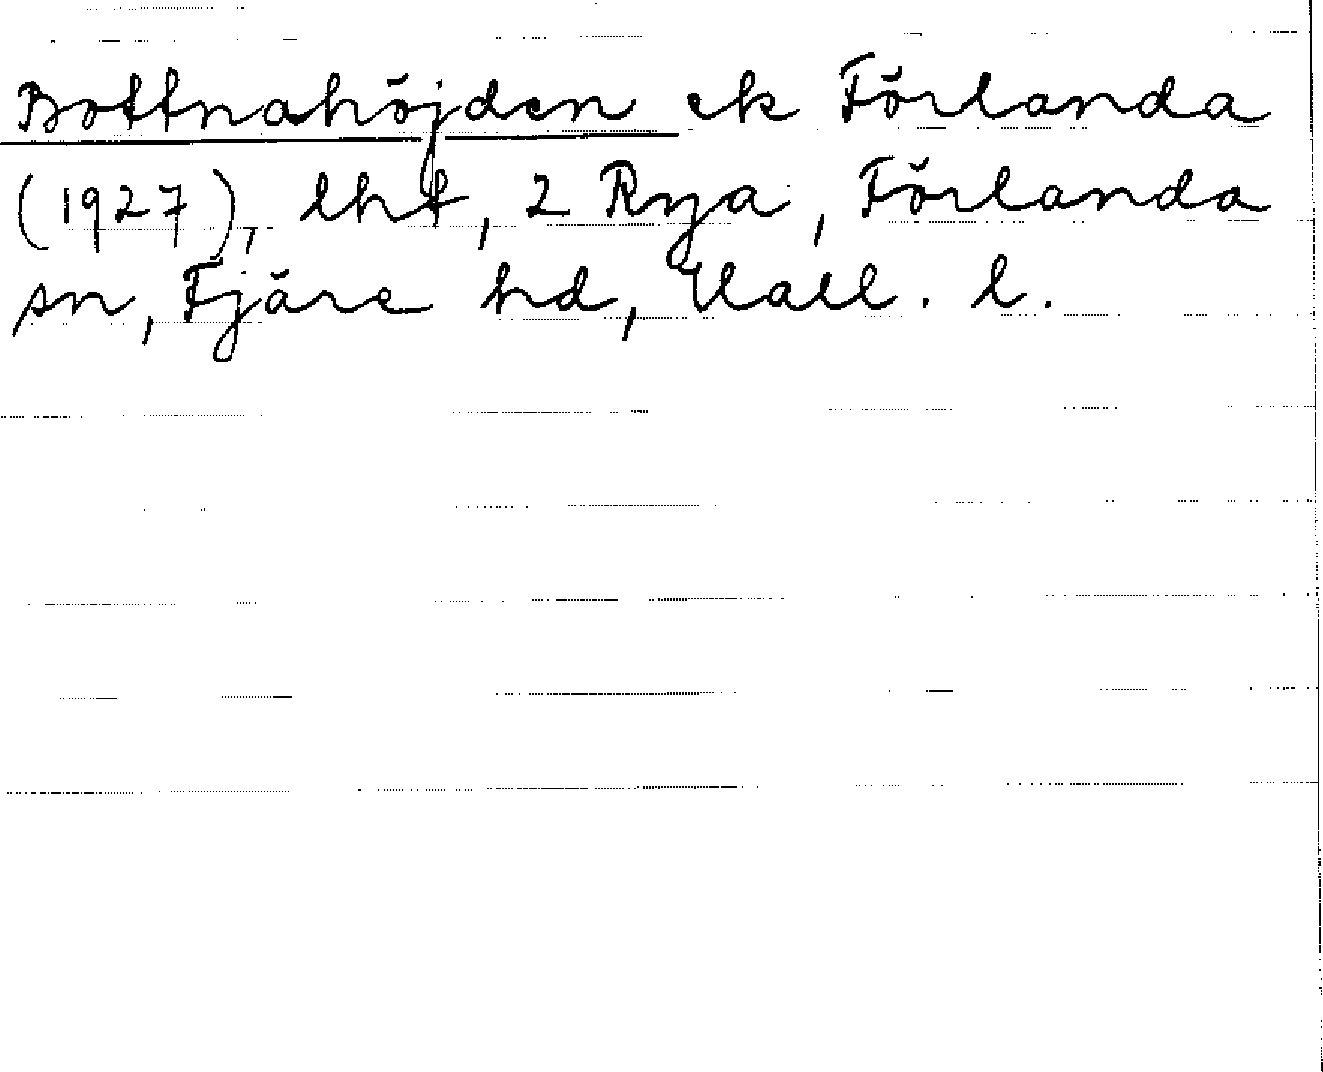 Bottnahöjden ek Förlanda
(1927), lht, 2 Rya, Förlanda
sn, Fjäre hd, Hall. l.